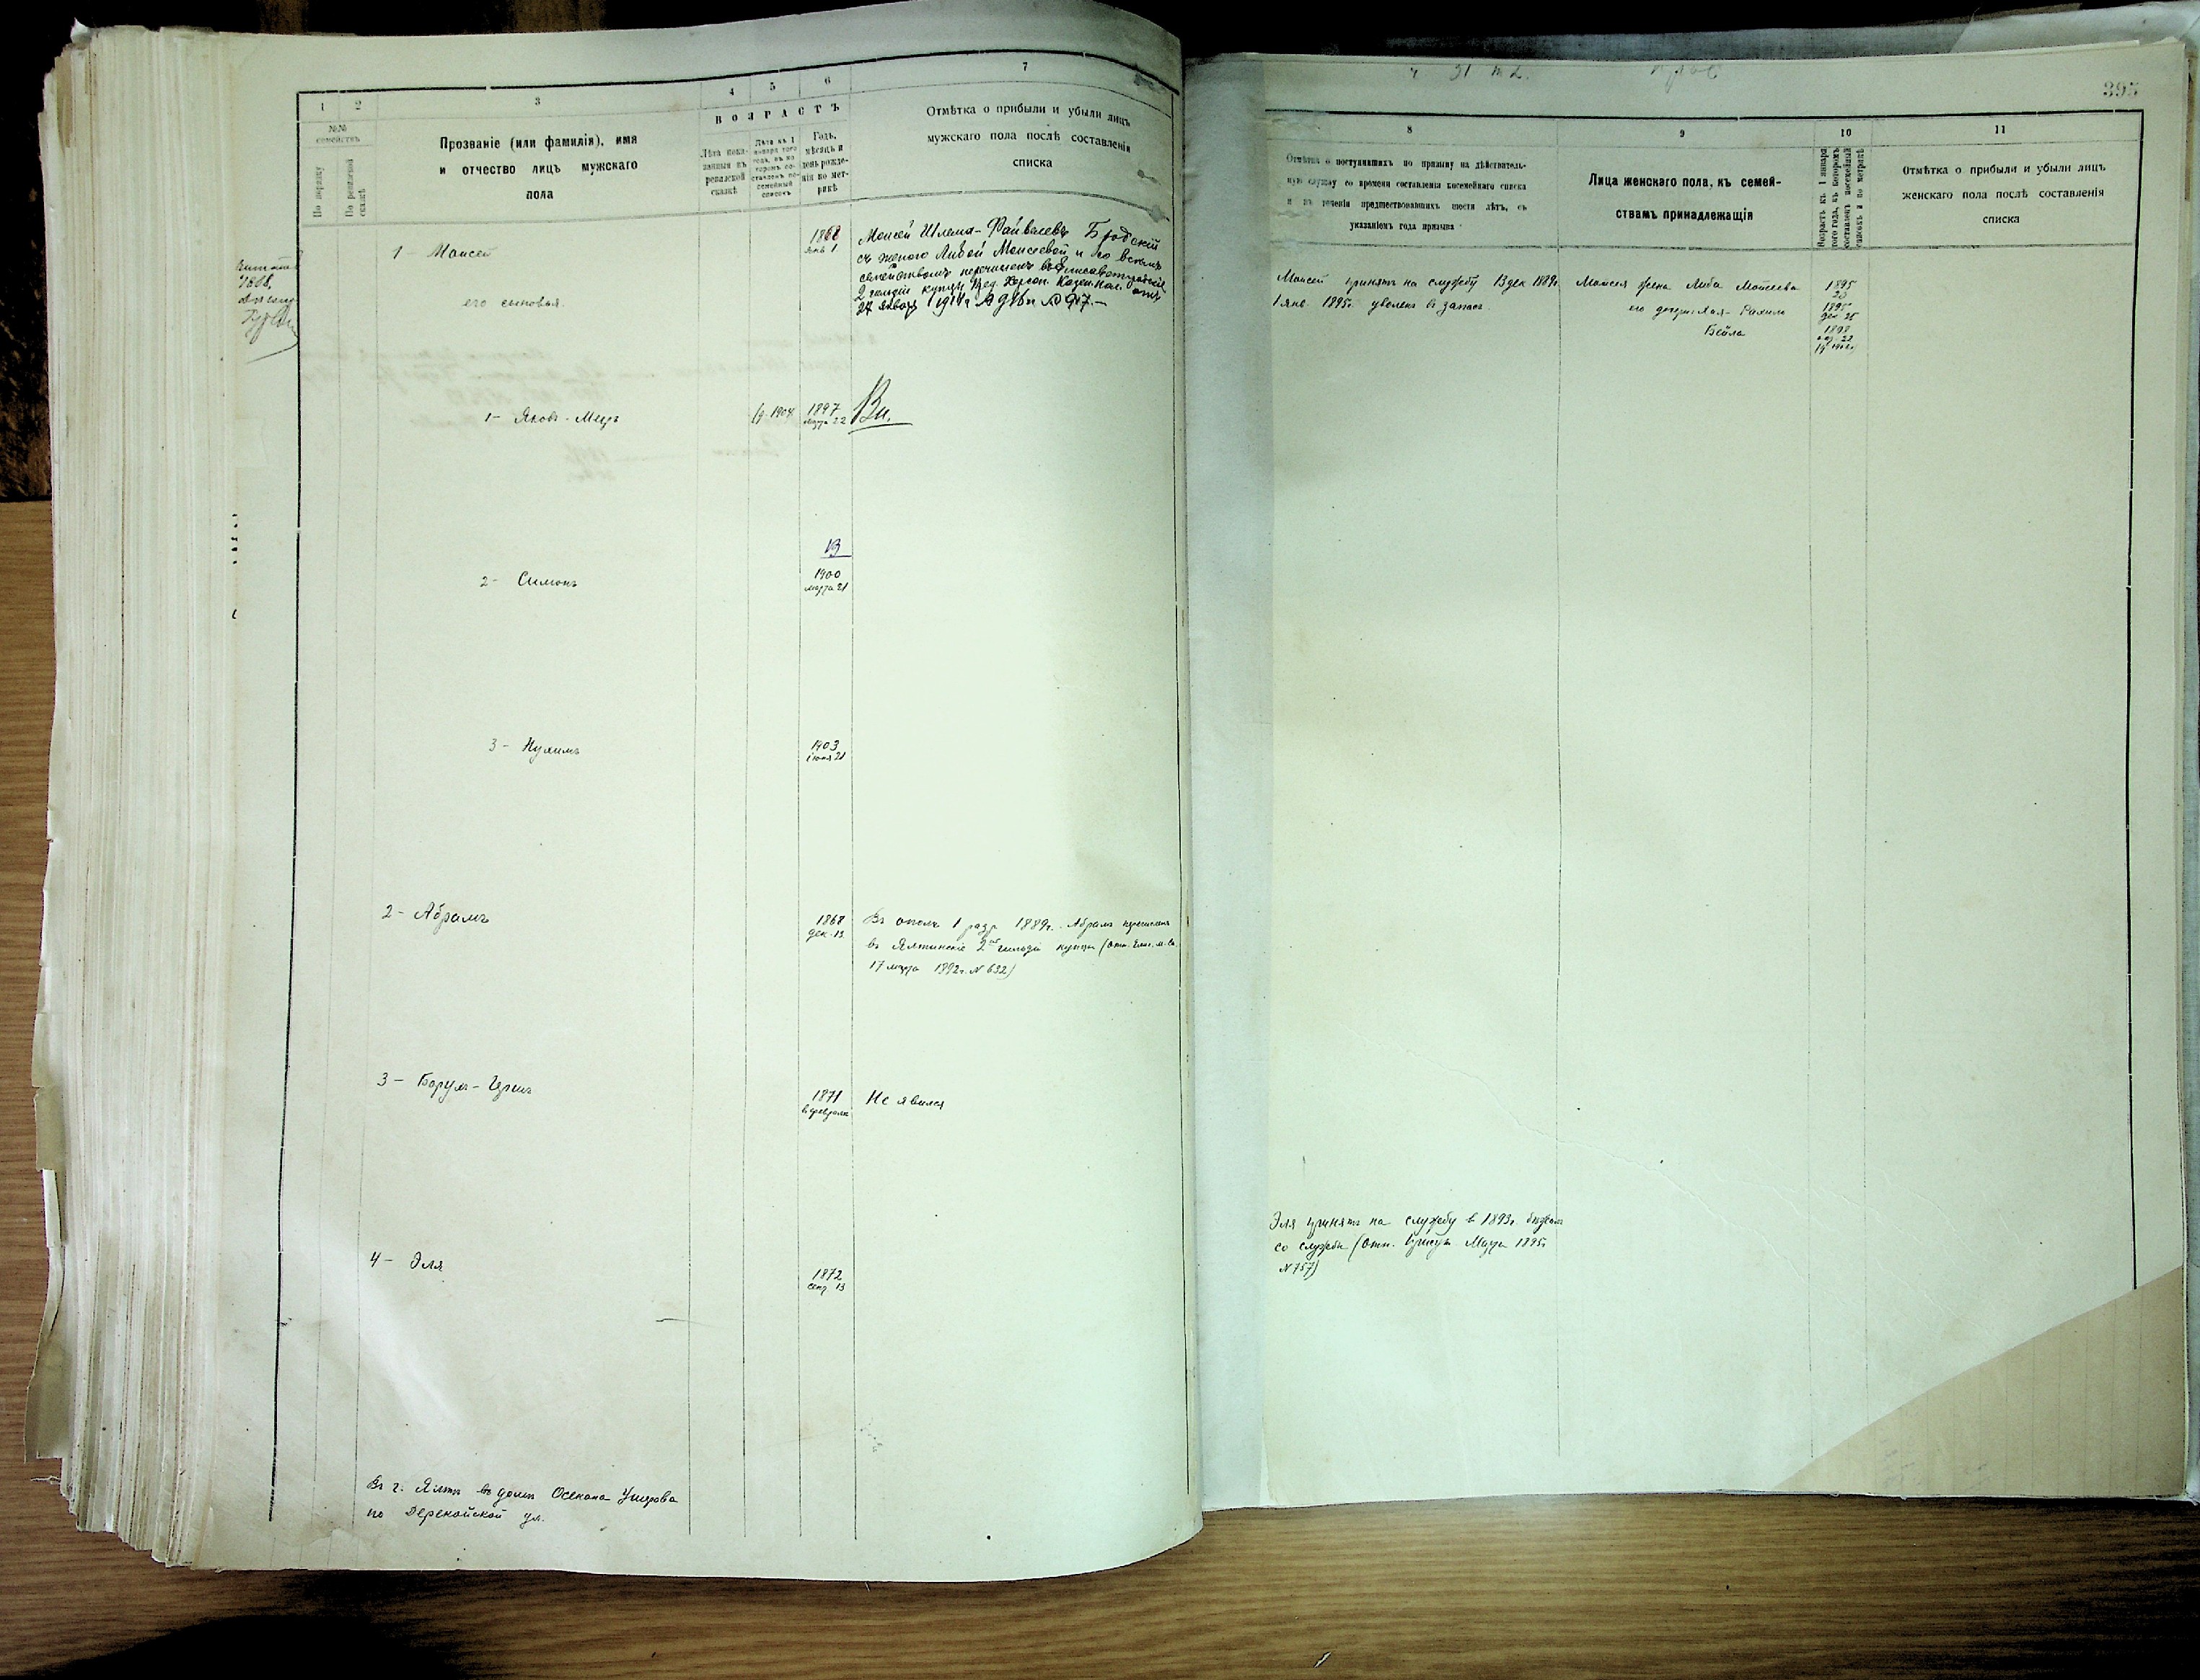 1
2
3
4
5
6
7
№№
семействъ
По порядку
По ревизской
сказкѣ
Прозваніе (или фамилія), имя
и отчество лицъ мужскаго
пола
ВОЗРАСТЪ
Лѣта пока-
занныя въ
ревизской
сказкѣ
Лѣта къ 1
января того
года, въ ко
торомъ со-
ставленъ по-
семейный
списокъ
Годъ,
мѣсяцъ и
день рожде-
нія по мет-
рикѣ
Отмѣтка о прибыли и убыли лицъ
мужскаго пола послѣ составленія
списка
1 - Моисей
его сыновья
1868
янв 1
Моисей Шлема-Файвелевъ Бродскій
съ женою Либой Моисеевой и со всѣмъ
семействомъ перечисленъ въ Елисаветградскіе
2 гильдіи купцы Пред. Херсон. Казен. Пал. отъ
24 января 1914 г.
1 - Яковъ - Меер
(д. 1904
1897
марта 22
Вн.
В
2 - Симонъ
1900
марта 21
3 - Нухимъ
1903
іюня 21
2 - Абрамъ
1868
дек. 13
Въ ополч 1 разр 1889 г. Абрамъ перечисленъ
въ Ялтинскіе 2ой гильдіи купцы
17 марта 1892 г. N 632)
3 - Борухъ - Ицикъ
1871
февраля
Не явился
4 - Эля
1872
сент 13
Въ г. Ялтѣ въ домѣ
по Дерекойской ул.
395
8
9
10
11
Отмѣтка о поступившихъ по призыву на дѣйствитель-
ную службу со времени составленія посемейнаго списка
и въ теченіи предшествовавшихъ шести лѣтъ, съ
указаніемъ года призыва
Лица женскаго пола, къ семей-
ствамъ принадлежащія
Возрастъ къ 1 января
того года, въ которомъ
составленъ посемейный
списокъ и по метрикѣ
Отмѣтка о прибыли и убыли лицъ
женскаго пола послѣ составленія
списка
Моисей принятъ на службу 13 дек 1889 г.
1 янв 1895 г. уволенъ въ запасъ
Моисея жена Либа Моисеева
его дочери Хая - Рахиль
Бейла
1895
1895
дек 25
1898
22
Эля принятъ на службу в 1893 г.
со службы (отн. Марта 1895 г.
N 757)